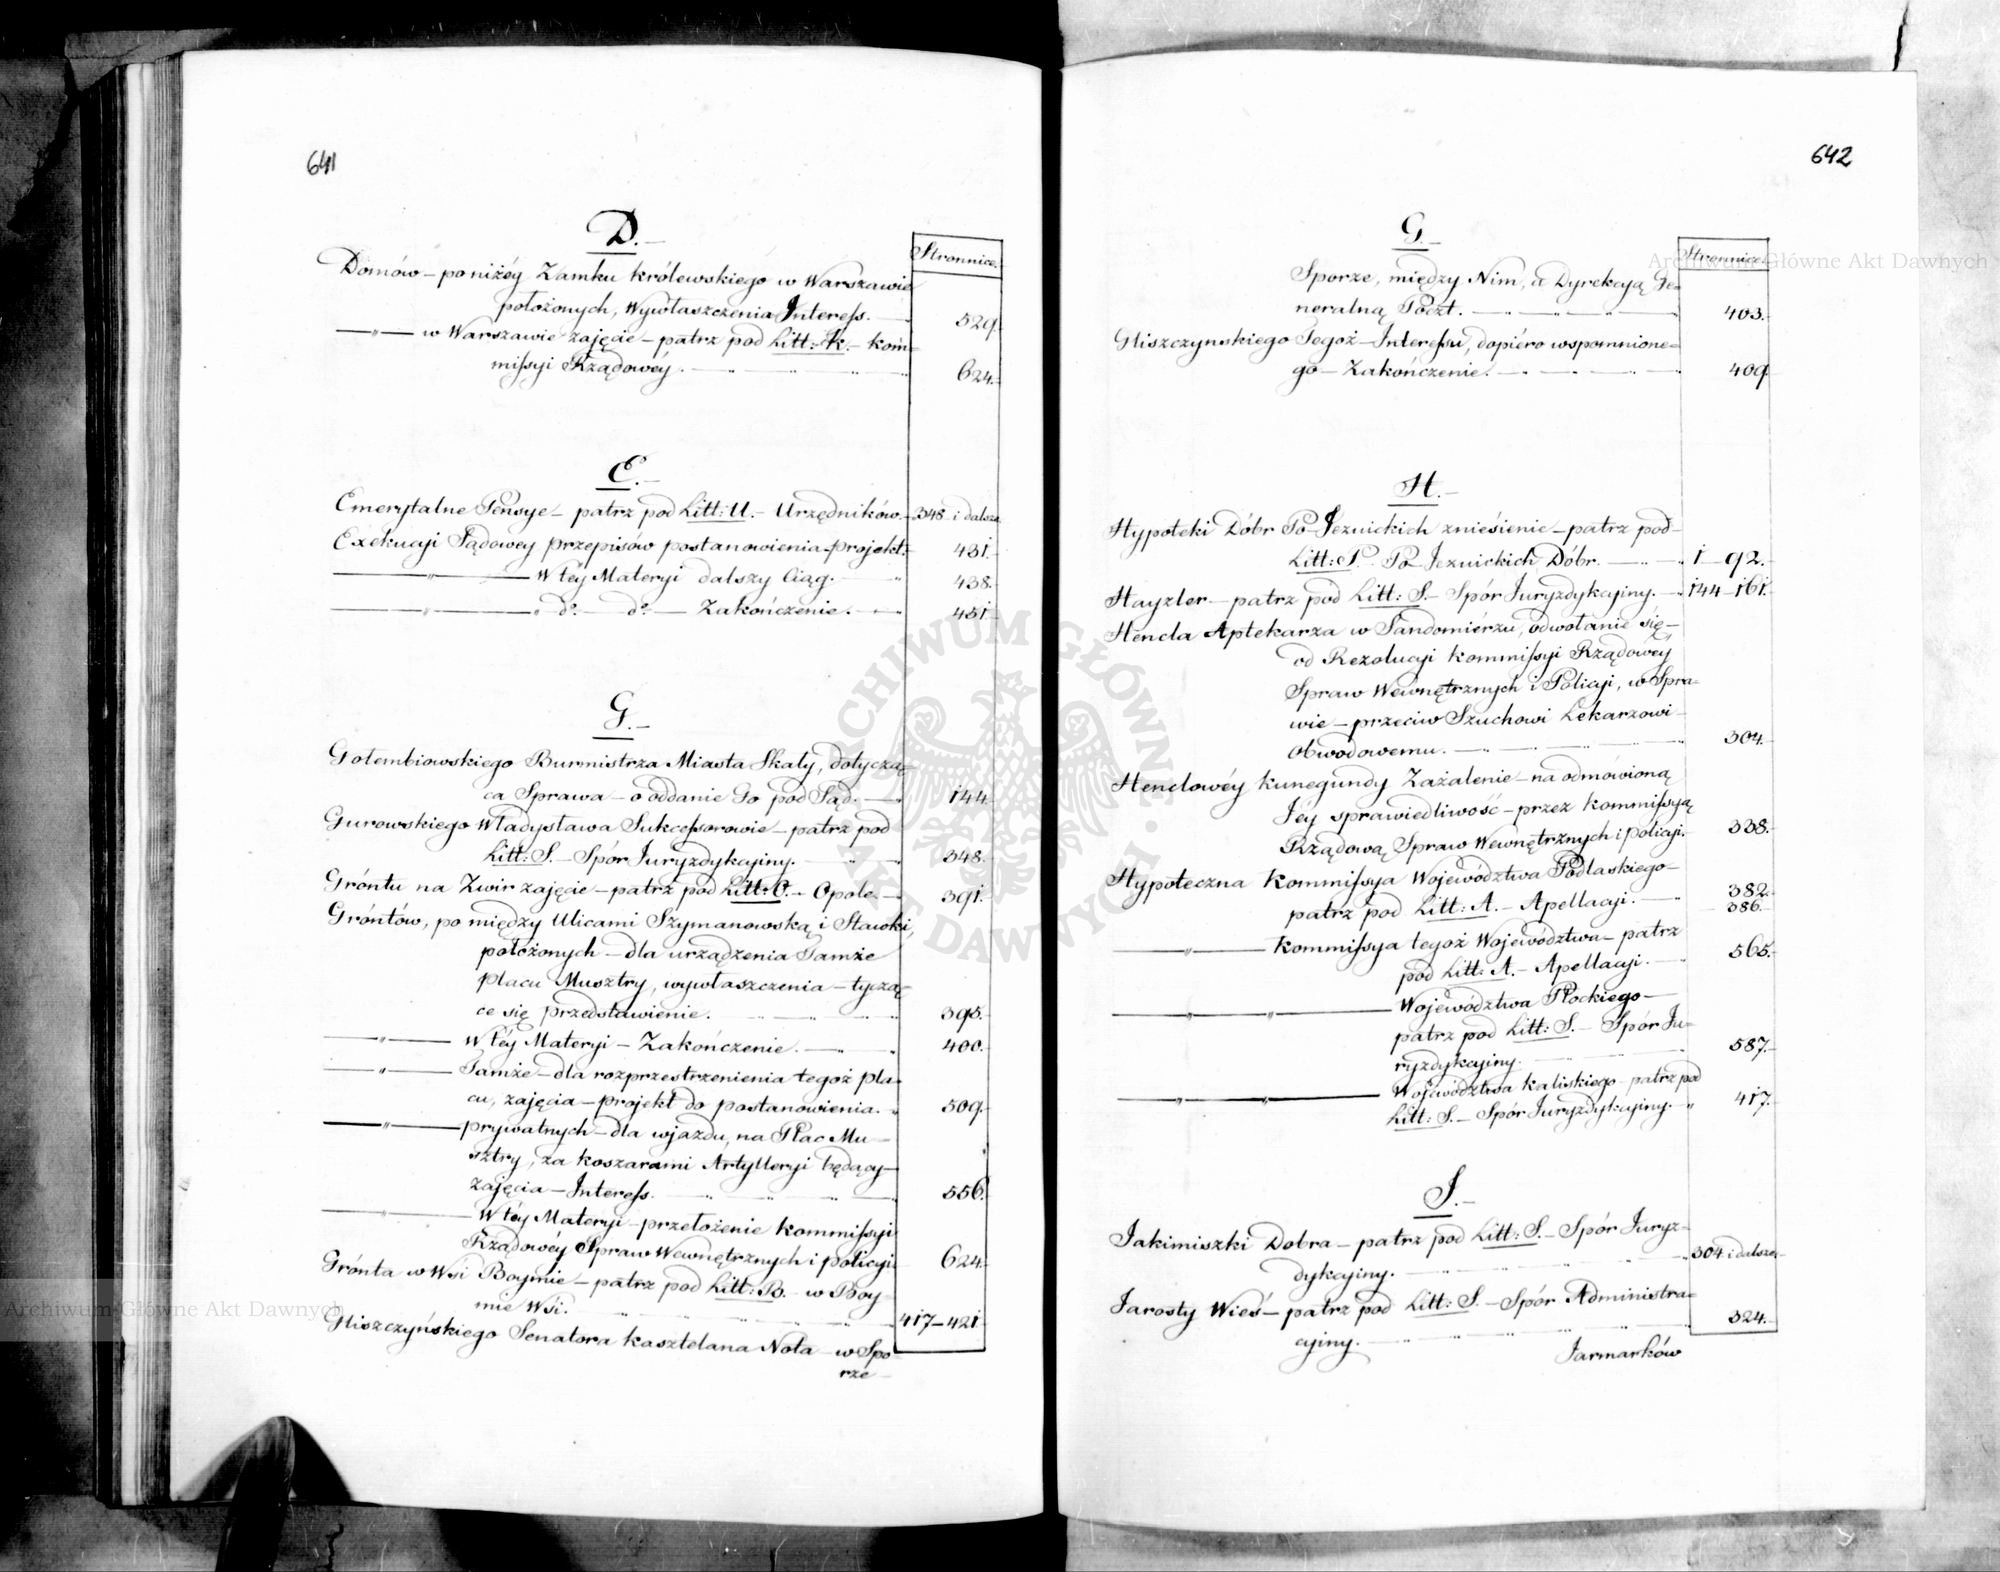 641
D.
Stronnice.
Domów – poniżéy Zamku królewskiego w Warszawie
położonych, Wywłaszczenia Interess. 529.
—„— w Warszawie zajęcie – patrz pod Litt: K. – Kom-
missyi Rządowéy. 624.
E.
Emerytalne Pensye – patrz pod Litt: U. – Urzędników. 348 i dalsze
Exekucyi Sądowey przepisów postanowienia – projekt. 431.
—„— W téy Materyi dalszy Ciąg. 438.
—„— „ do — do — Zakończenie. 451.
G.
Gołembiowskiego Burmistrza Miasta Skały, dotyczą-
ca Sprawa – o oddanie Go pod Sąd. 144.
Gurowskiego Władysława Sukcessorowie – patrz pod
Litt: S. – Spór Juryzdykcyiny. 348.
Gróntu na Zwir zajęcie – patrz pod Litt: O. – Opole 391.
Gróntów, pomiędzy Ulicami Szymanowską i Stawki,
położonych – dla urządzenia Tamże
Placu Musztry, wywłaszczenia – tyczą-
ce się przedstawienie. 395.
—„— W téy Materyi – Zakończenie. 400.
—„— Tamże – dla rozprzestrzenienia tegoż Pla-
cu, zajęcia – projekt do postanowienia. 509.
—„— prywatnych – dla wjazdu, na Plac Mu-
sztry, za koszarami Artylleryi będący –
zajęcia – Interess. 556.
— W téy Materyi – przełożenie Kommissyi
Rządowéy Spraw Wewnętrznych i policyi 624.
Grónta w Wsi Boymie – patrz pod Litt: B. – w Boy-
mie Wsi. 417–421
Gliszczyńskiego Senatora Kasztelana Nota – w Spo-
rze –
642
G.
Stronnice.
Sporze, między Nim, a Dyrekcyą Ge-
neralną Poczt. 403.
Gliszczynskiego Tegoż – Interessu, dopiéro wspomnione-
go – Zakończenie. 409.
H.
Hypoteki Dóbr Po-Jezuickich zniesienie – patrz pod
Litt: P. Po-Jezuickich Dóbr. 1–92.
Hayzler – patrz pod Litt: S. – Spór Juryzdykcyiny. 144–161.
Hencla Aptekarza w Sandomiérzu, odwołanie się –
od Rezolucyi Kommissyi Rządowéy
Spraw Wewnętrznych i Policyi, w Spra-
wie – przeciw Szuchowi Lekarzowi
Obwodowemu. 304.
Henclowéy Kunegundy Zażalenie – na odmówioną
Jéy sprawiedliwość – przez Kommissyą
Rządową Spraw Wewnętrznych i policyi. 338.
Hypoteczna Kommissya Województwa Podlaskiego –
patrz pod Litt: A. – Apellacyi. 382.
386.
—„— Kommissya tegoż Województwa – patrz
pod Litt: A. – Apellacyi. 565.
—„—„— Województwa Płockiego –
patrz pod Litt: S. – Spór Ju-
ryzdykcyiny. 587.
—„—„— Województwa Kaliskiego – patrz pod
Litt: S. – Spór Juryzdykcyiny. 417.
J.
Jakimiszki Dobra – patrz pod Litt: S. – Spór Juryz-
dykcyiny. 304 i dalsze
Jarosty Wieś – patrz pod Litt: S. – Spór Administra-
cyiny. 324.
Jarmarków
ARCHIWUM GŁÓWNE AKT DAWNYCH
Archiwum Główne Akt Dawnych
Archiwum Główne Akt Dawnych